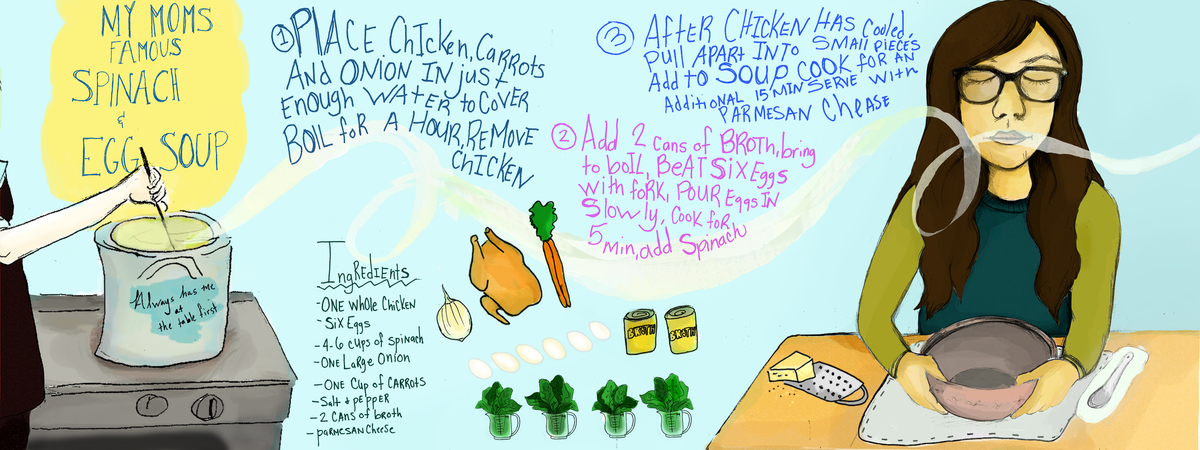 MY MOMS
FAMOUS
SPINACH
&
EGG SOUP
Always has me
at
the table first
① PLACE Chicken, CARROTS
AND ONION IN just
ENOUGH WATER to COVER
BOIL for A HOUR, REMOVE
CHICKEN
IngREDIENTS
-ONE WHOLE CHICKEN
-SIX EGGS
-4-6 CUPS of SPINACH
-ONE LARGE ONION
-ONE Cup of CARROTS
-SALt & pEPPER
-2 CANS of bROTH
-pARMESAN CHEESE
② Add 2 cans of BROTH, bring
to boIL, BEAT SIX Eggs
with foRK, POUR Eggs IN
Slowly, Cook foR
5 min, add Spinach
③ AfTER CHICKEN HAS Cooled,
Pull APART INTO SMAll PIECES
Add to SOUP COOK foR AN
AdditiONAL 15 MIN SERVE WITH
PARMESAN ChEASE
BROTH
BROTH